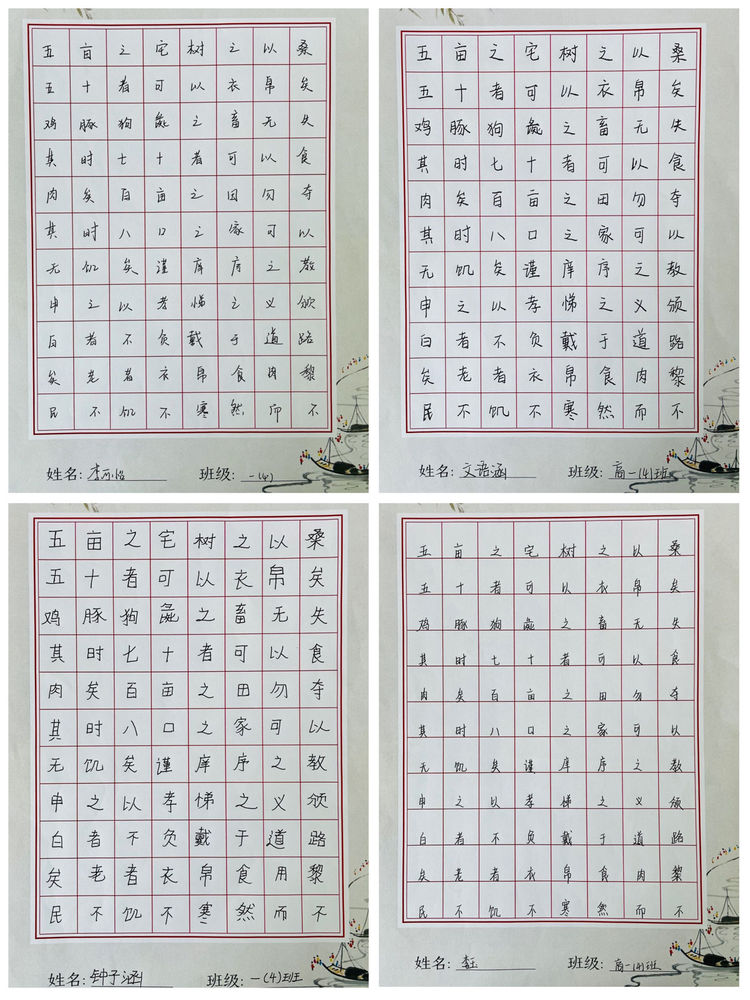 五亩之宅树之以桑
五十者可以衣帛矣
鸡豚狗彘之畜无失
其时七十者可以食
肉矣百亩之田勿夺
其时八口之家可以
无饥矣谨庠序之教
申之以孝悌之义颁
白者不负戴于道路
矣老者衣帛食肉黎
民不饥不寒然而不
姓名: 班级: 一(4)
五亩之宅树之以桑
五十者可以衣帛矣
鸡豚狗彘之畜无失
其时七十者可以食
肉矣百亩之田勿夺
其时八口之家可以
无饥矣谨庠序之教
申之以孝悌之义颁
白者不负戴于道路
矣老者衣帛食肉黎
民不饥不寒然而不
姓名: 文语涵 班级: 高一(4)班
五亩之宅树之以桑
五十者可以衣帛矣
鸡豚狗彘之畜无失
其时七十者可以食
肉矣百亩之田勿夺
其时八口之家可以
无饥矣谨庠序之教
申之以孝悌之义颁
白者不负戴于道路
矣老者衣帛食用黎
民不饥不寒然而不
姓名: 钟子涵 班级: 一(4)班
五亩之宅树之以桑
五十者可以衣帛矣
鸡豚狗彘之畜无失
其时七十者可以食
肉矣百亩之田勿夺
其时八口之家可以
无饥矣谨庠序之教
申之以孝悌之义颁
白者不负戴于道路
矣老者衣帛食肉黎
民不饥不寒然而不
姓名: 班级: 高一(4)班